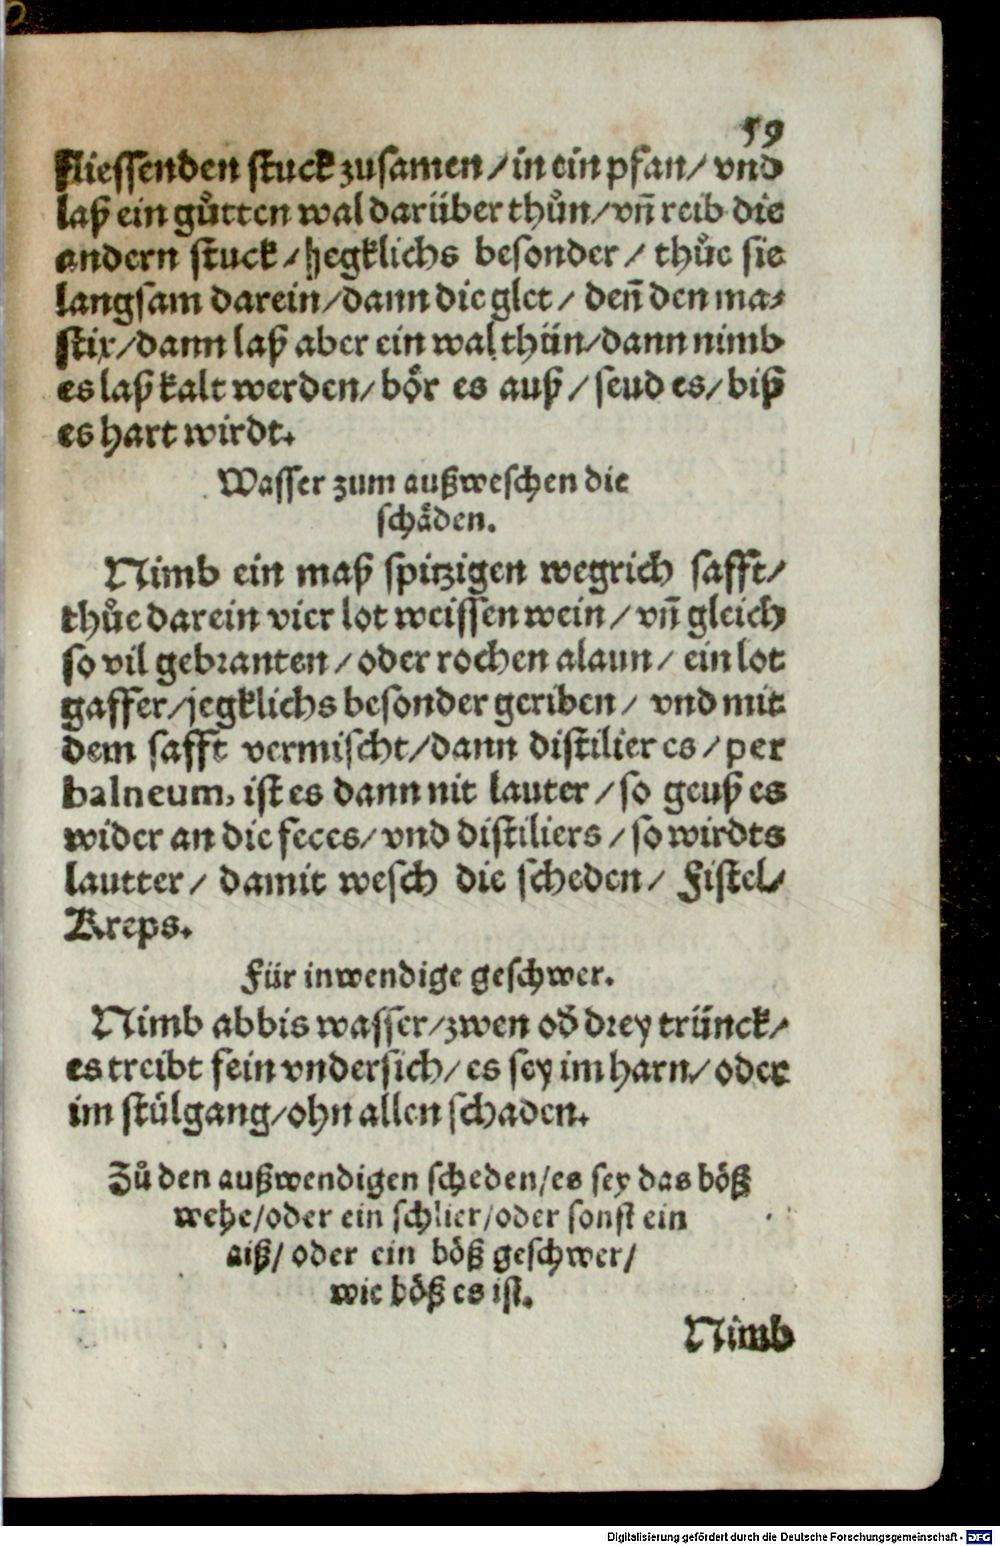 59
fliessenden stuck zusamen/in ein pfan/vnd
laß ein gůtten wal darüber thůn/vñ reib die
andern stuck/yegklichs besonder/thůe sie
langsam darein/dann die glet/deñ den ma⸗
stix/dann laß aber ein wal thün/dann nimb
es laß kalt werden/bőr es auß/seud es/biß
es hart wirdt.
Wasser zum außweschen die
schäden.
Nimb ein maß spitzigen wegrich safft/
thůe darein vier lot weissen wein/vñ gleich
so vil gebranten/oder rochen alaun/ein lot
gaffer/jegklichs besonder geriben/vnd mit
dem safft vermischt/dann distilier es/per
balneum, ist es dann nit lauter/so geuß es
wider an die feces/vnd distiliers/so wirdts
lautter/damit wesch die scheden/Fistel/
Kreps.
Für inwendige geschwer.
Nimb abbis wasser/zwen od̃ drey trünck/
es treibt fein vndersich/es sey im harn/oder
im stülgang/ohn allen schaden.
Zů den außwendigen scheden/es sey das böß
wehe/oder ein schlier/oder sonst ein
aiß/oder ein böß geschwer/
wie böß es ist.
Nimb
Digitalisierung gefördert durch die Deutsche Forschungsgemeinschaft - DFG